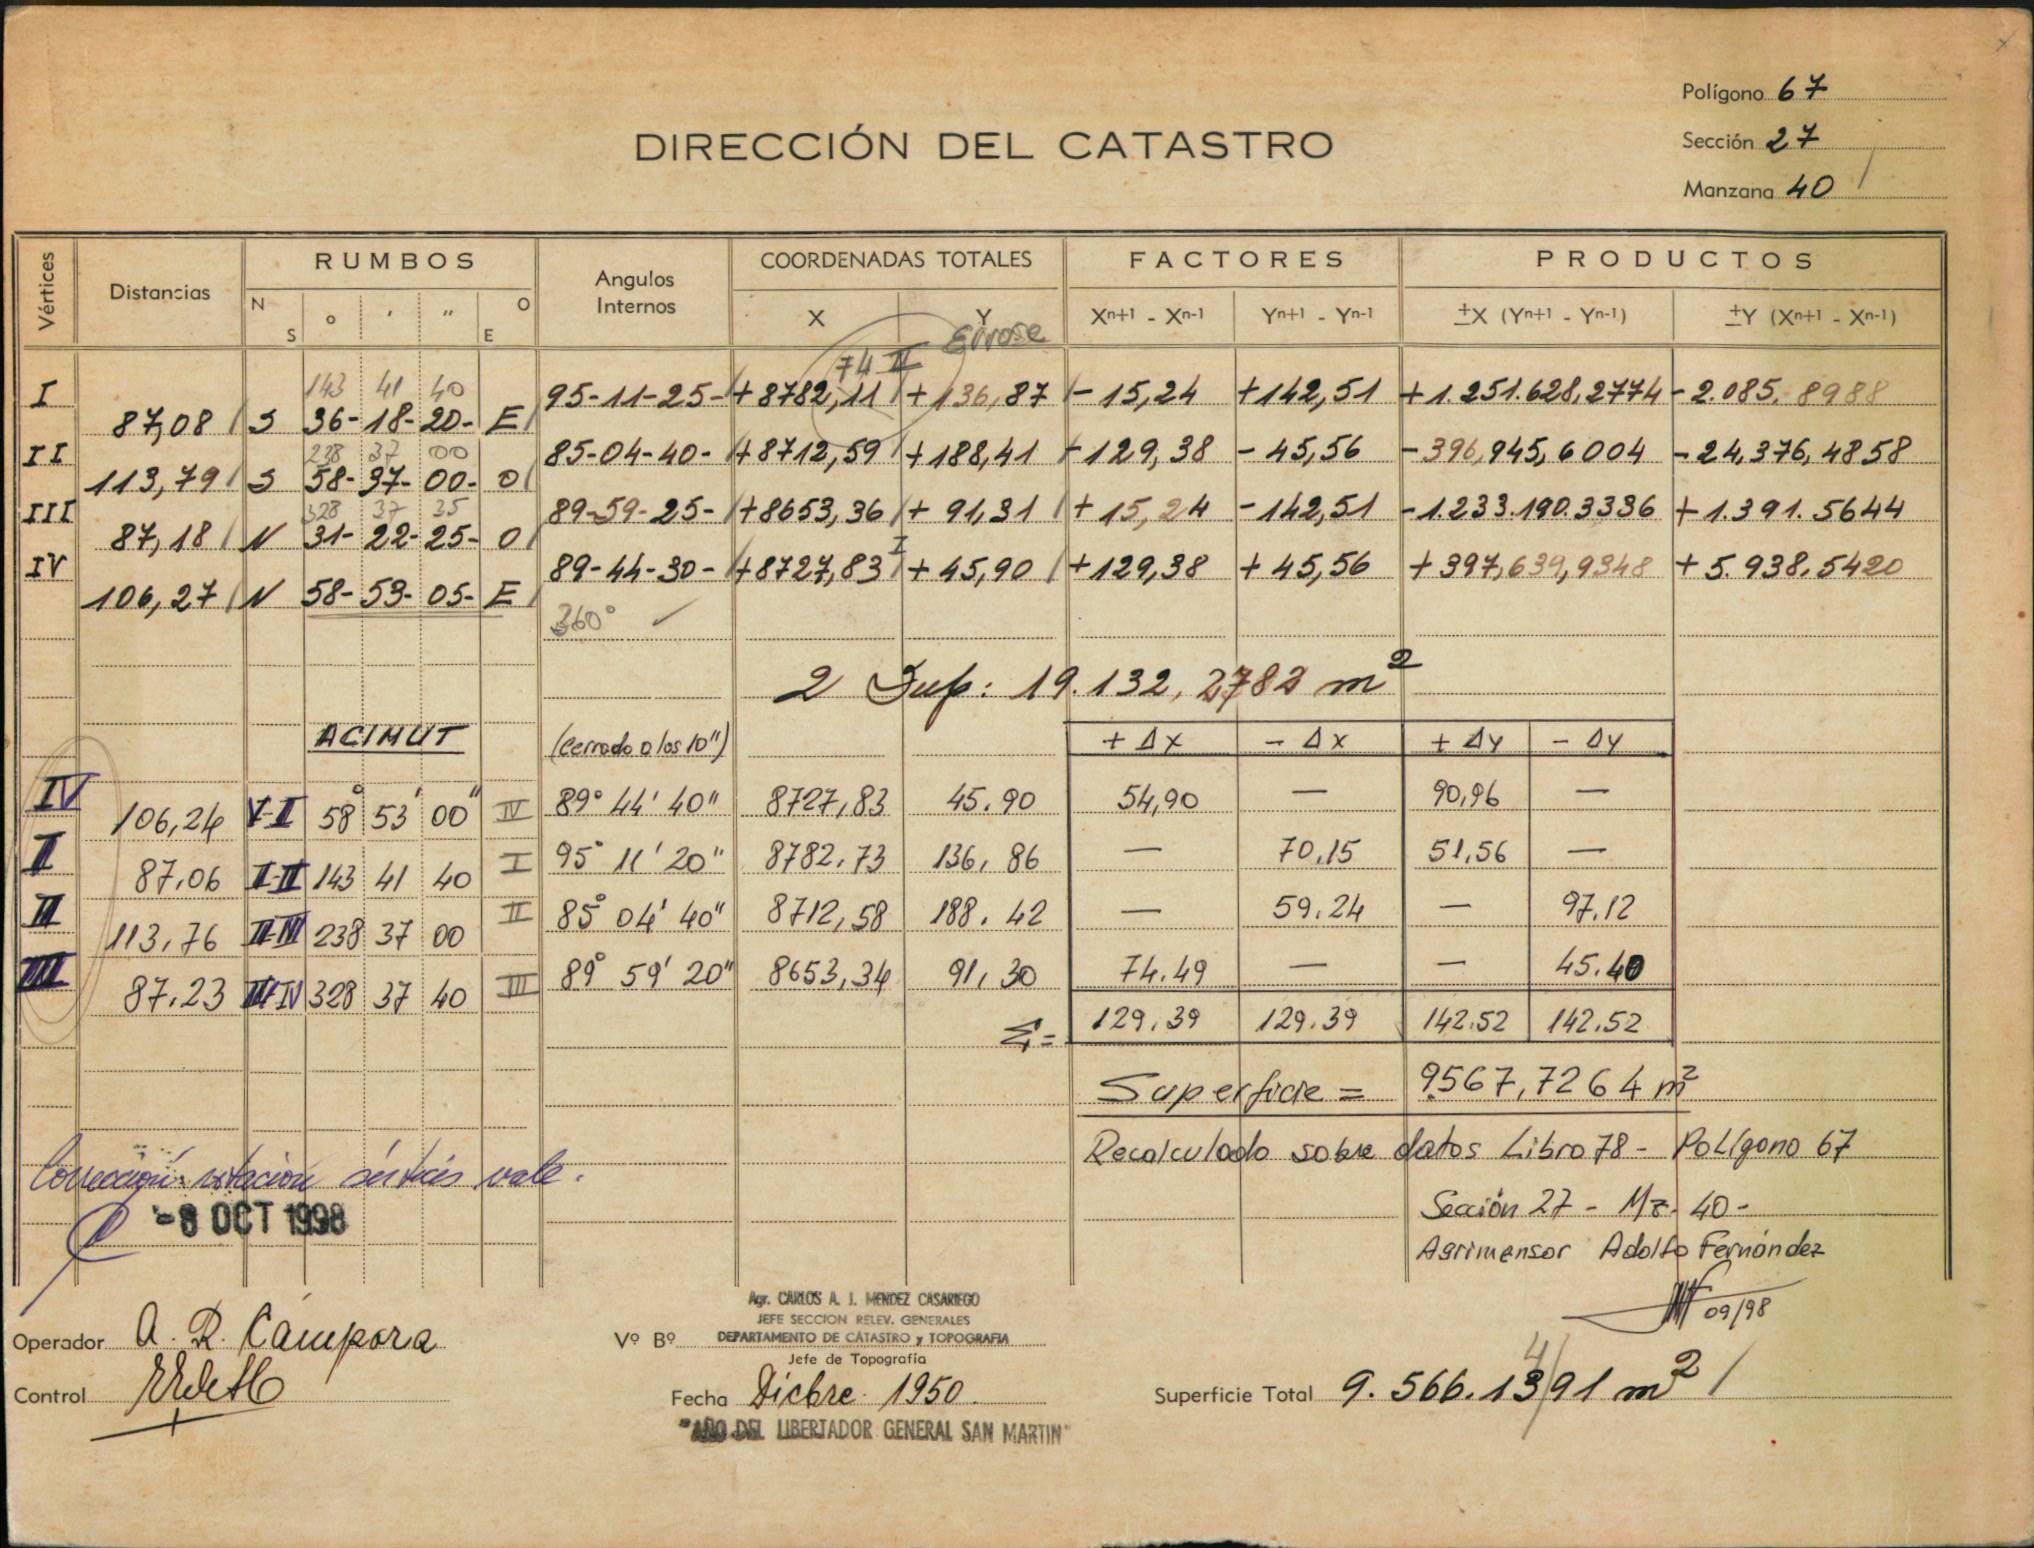 Polígono 67
DIRECCIÓN DEL CATASTRO
Sección 27
Manzana 40
Vértices Distancias RUMBOS Angulos Internos COORDENADAS TOTALES FACTORES PRODUCTOS
N S ° ' '' O E X Y Xn+1 - Xn-1 Yn+1 - Yn-1 ±X (Yn+1 - Yn-1) ±Y (Xn+1 - Xn-1)
74 II
143 41 40
I 95-11-25- +8782,11 +136,87 -15,24 +142,51 +1.251.628,2774 -2.085,8988
87,08 S 36-18-20- E
238 37 00
II 85-04-40- +8712,59 +188,41 -129,38 -45,56 -396,945,6004 -24,376,4858
113,79 S 58-37-00- O
328 37 35
III 89-59-25- +8653,36 +91,31 +15,24 -142,51 -1.233.190.3336 +1.391.5644
87,18 N 31-22-25- O
IV 89-44-30- +8727,83 +45,90 +129,38 +45,56 +397,639,9348 +5.938,5420
106,27 N 58-53-05- E
360°
2 Sup: 19.132,2782 m²
ACIMUT (cerrado a los 10") + Δx - Δx + Δy - Δy
IV 89° 44' 40" 8727,83 45.90 54,90 — 90,96 —
106,24 58° 53' 00" IV
I 95° 11' 20" 8782,73 136,86 — 70,15 51,56 —
87,06 I-II 143 41 40 I
II 85° 04' 40" 8712,58 188.42 — 59.24 — 97.12
113,76 II-III 238 37 00 II
III 89° 59' 20" 8653,34 91,30 74.49 — — 45.40
87.23 III-IV 328 37 40 III
Σ= 129.39 129.39 142.52 142.52
Superficie = 9567,7264 m²
Recalculado sobre datos Libro 78 - Polígono 67
Corrección: rotación vértices vale.
Sección 27 - Mz. 40-
-8 OCT 1998
Agrimensor Adolfo Fernández
09/98
Agr. CARLOS A. J. MENDEZ CASARIEGO
JEFE SECCION RELEV. GENERALES
Operador A. R. Cámpora Vº Bº DEPARTAMENTO DE CATASTRO y TOPOGRAFIA
Jefe de Topografía
Control Fecha Dicbre. 1950 Superficie Total 9.566.1391 m²
4
"AÑO DEL LIBERTADOR GENERAL SAN MARTIN"